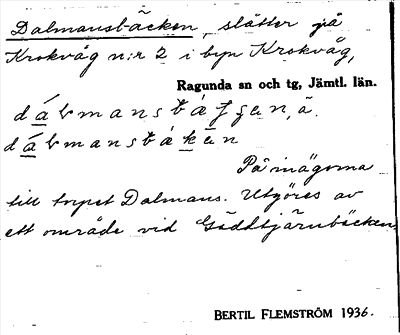 Dalmansbäcken, slåtter på
Krokvåg n:r 2 i byn Krokvåg,
Ragunda sn och tg, Jämtl. län.
På inägorna
till torpet Dalmans. Utgöres av
ett område vid Gäddtjärnbäcken.
BERTIL FLEMSTRÖM 1936.